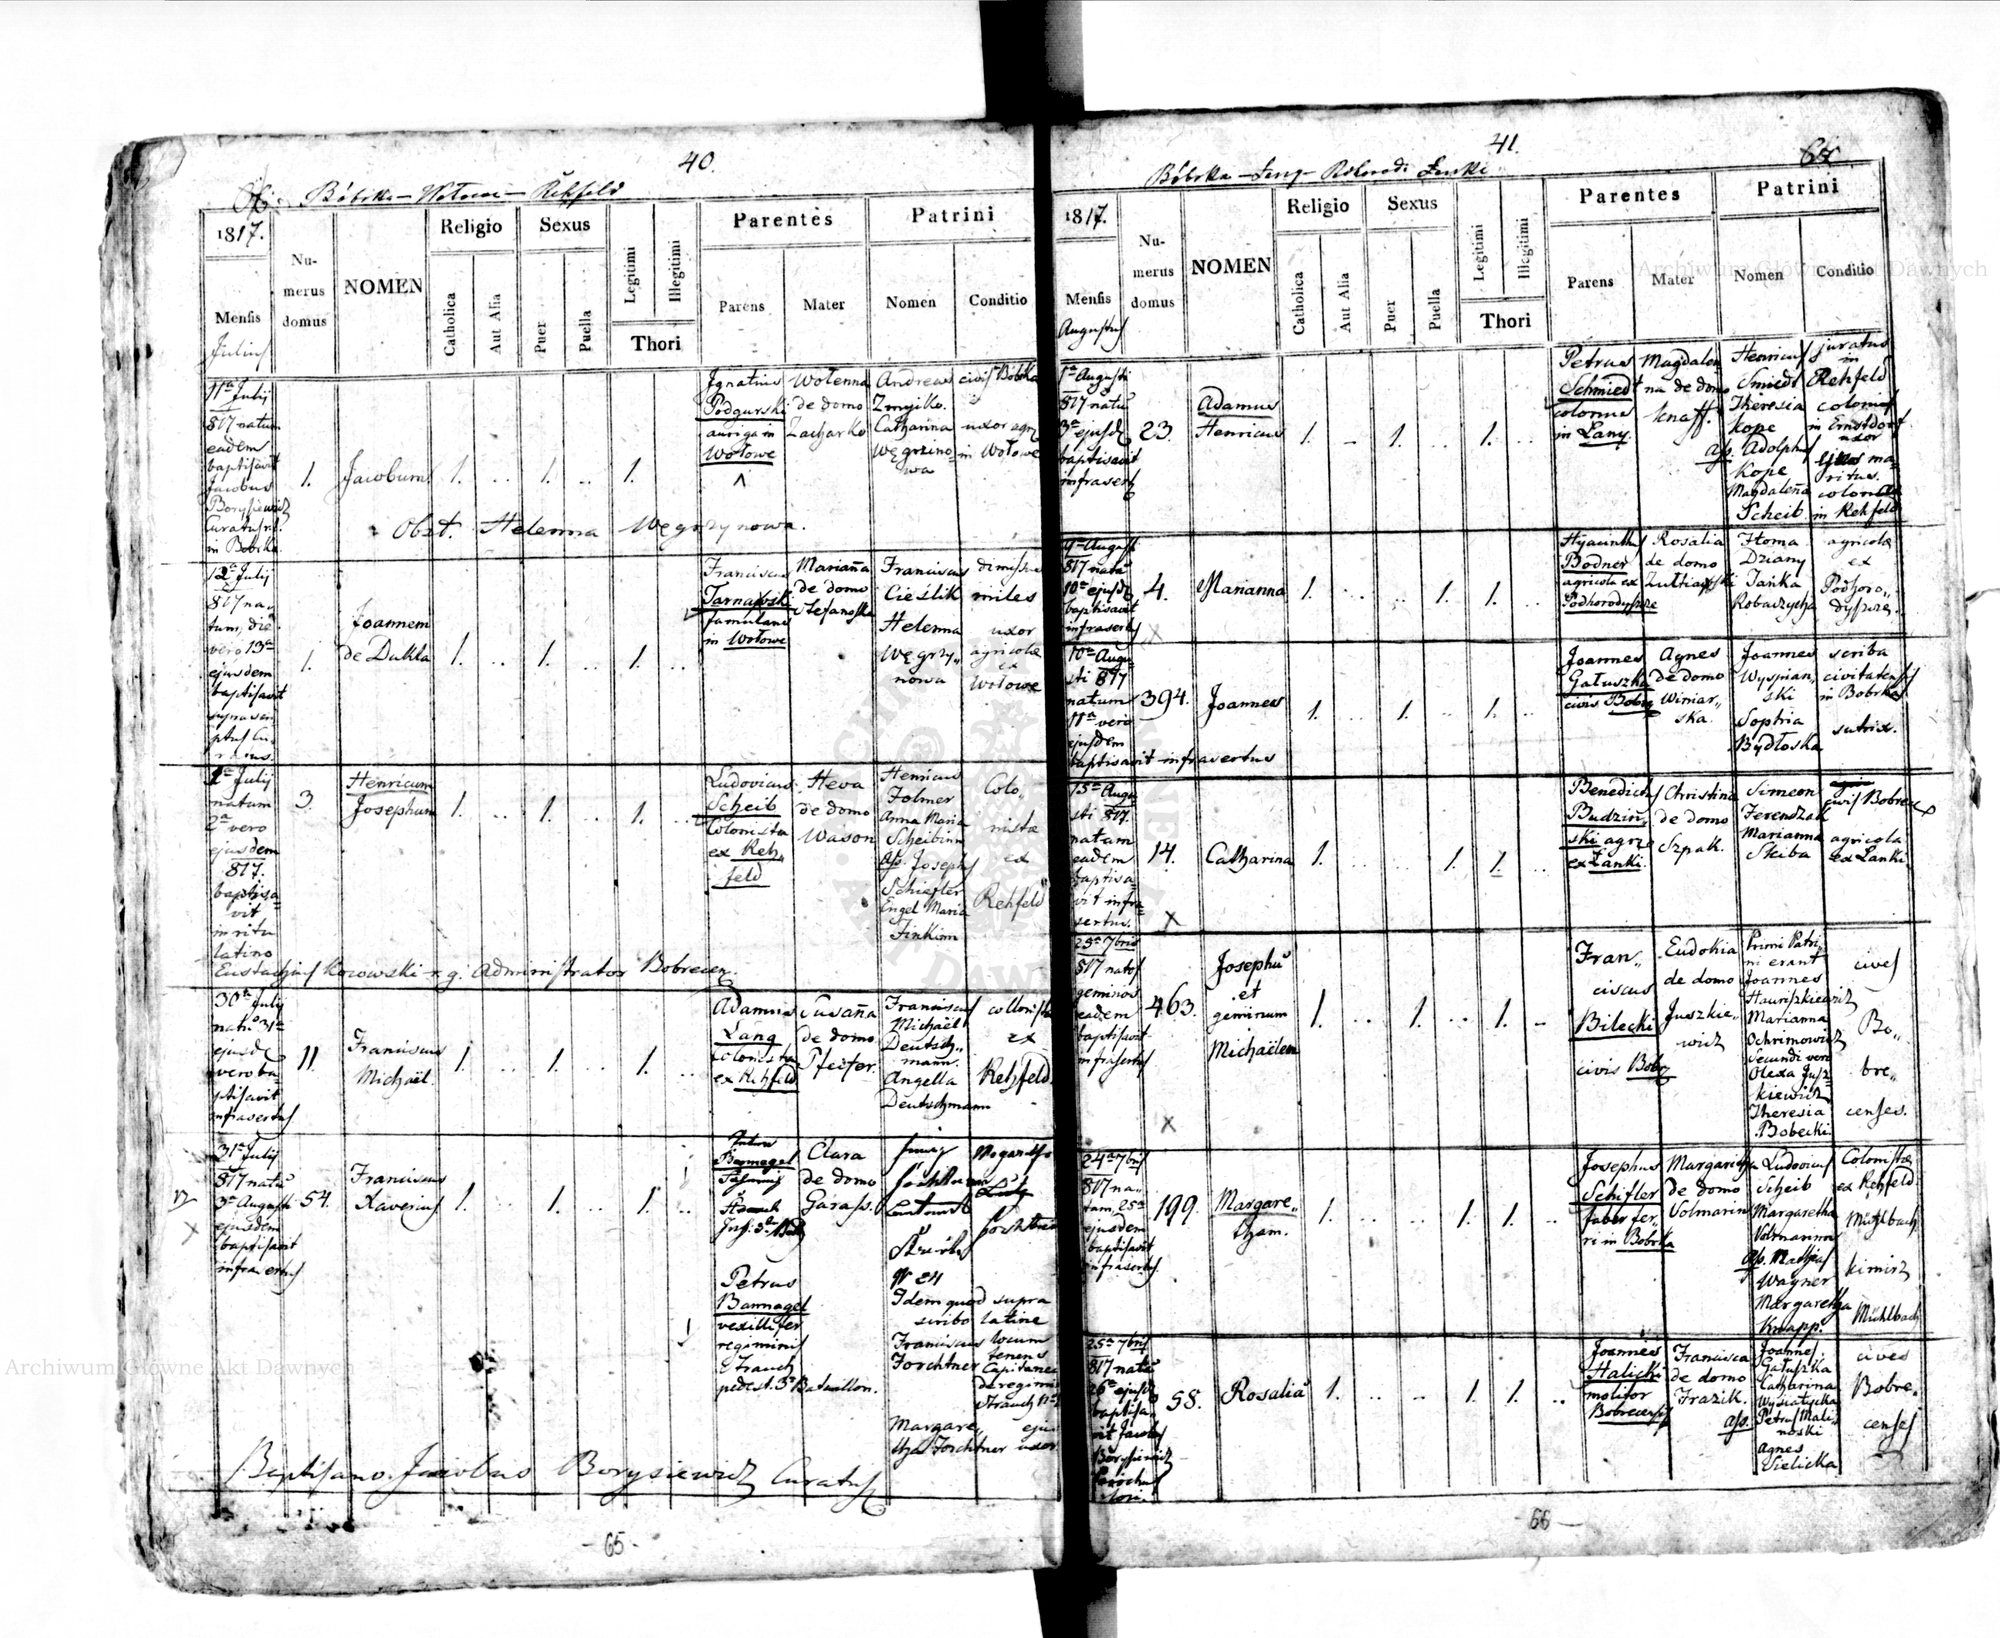 40.
66. Bóbrka - Wołowe - Rehfeld
1817.
Mensis
Julius
Numerus domus
NOMEN
Religio
Catholica
Aut Alia
Sexus
Puer
Puella
Legitimi
Illegitimi
Thori
Parentes
Parens
Mater
Patrini
Nomen
Conditio
11a Julij
817 natum
eadem
baptisavit
Jacobus
Borysiewicz
Curatus
in Bobrka.
1.
Jacobum
1. .. 1. .. 1.
Ignatius
Podgurski
auriga in
Wołowe
Wołenna
de domo
Zacharko
Andreas
Zmyiko.
Catharina
Węgrzino=
wa
civis Bobrka
uxor agr
in Wołowe
Obst. Helenna Węgrzynowa.
12a Julij
817 na=
tum, die
vero 13a
ejusdem
baptisavit
suprascri
ptus Cu
ratus.
1.
Joannem
de Dukla
1. .. 1. .. 1. ..
Franciscus
Tarnawski
famulans
in Wołowe
Marianna
de domo
Stefanoska
Franciscus
Cieslik
Helenna
Węgrzy„
nowa
dimissus
miles
uxor
agricolæ
ex
Wołowe
1a Julij
natum
2a vero
ejusdem
817.
baptisa=
vit
in ritu
latino
Eustachius Kozowski r. g. Administrator Bobrecen.
3.
Henricum
Josephum
1. .. 1. .. 1. ..
Ludovicus
Scheib
Colonista
ex Reh„
feld
Heva
de domo
Wason
Henricus
Folmer
Anna Maria
Scheibinn
ass. Joseph
Schiefler
Engel Maria
Finkim
Colo„
nistæ
ex
Rehfeld
30a Julij
nat. 31a
ejusde
vero ba=
ptisavit
infrasertus
11.
Franciscus
Michaël.
1. .. 1. .. 1. ..
Adamus
Lang
Colonista
ex Rehfeld
Susanna
de domo
Pfeifer.
Franciscus
Michaël
Deutsch„
mann.
Angella
Deutschmann
collonista
ex
Rehfeld.
31a Julij
817 natus
3a Augusti
ejusdem
baptisavit
infrasertus
54.
Franciscus
Xaverius
1. .. 1. .. 1. ..
Bannagel
Clara
de domo
Garass.
Petrus
Bannagel
vexillifer
regiminis
Strauch
pedest. 3i Bataillon.
N 24
Idem quod supra
scribo latine
Franciscus locum
Forchtner tenens
Capitanei
de regimi
Strauch
Margare, ejus
tha Forchtner uxor
Baptisano Jacobus Borysiewicz Curatus
- 65 -
41.
Bóbrka - Lany - Podhorodi Łanki
1817.
Mensis
Augustus
Numerus domus
NOMEN
Religio
Catholica
Aut Alia
Sexus
Puer
Puella
Legitimi
Illegitimi
Thori
Parentes
Parens
Mater
Patrini
Nomen
Conditio
1a Augusti
817 natus
3a ejusde
baptisavit
infrasert
23.
Adamus
Henricus
1. - 1. .. 1. ..
Petrus
Schmiedt
colonus
in Lany.
Magdalen
na de domo
Knaff.
Henricus
Smiedt
Theresia
Kope
ass. Adolphus
Kope
Magdalena
Scheib
juratus
in
Rehfeld
colonus
in Ernstdorf
uxor
ejus ma=
ritus.
colona
in Rehfeld
9a August
817 nata
10a ejusde
baptisavit
infrasertus
4.
Marianna
1. .. .. 1. 1. ..
Hyacinthus
Bodner
agricola ex
Podhorodyszcze
Rosalia
de domo
Homa
Dziany
Janka
Robaczycha
agricolæ
ex
Podhoro„
dyszcze.
10a Augu
sti 817
natum
11a vero
ejusdem
baptisavit infrasertus
394.
Joannes
1. .. 1. .. 1. ..
Joannes
Gałuszka
civis Bobr
Agnes
de domo
Winiar„
ska.
Joannes
Wyspian,
ski
Sophia
Bydłoska
scriba
civitatensis
in Bobrka
sutrix.
15a Augu
sti 817.
natam
eadem
baptisa=
vit infra=
sertus.
14.
Catharina
1. .. .. 1. 1. ..
Benedictus
Budzin„
ski agr
ex Łanki.
Christina
de domo
Szpak.
Simeon
Ferenszak
Marianna
Skiba
civis Bobrec
agricola
ex Łanki.
23a 7bris
817 natos
geminos
eadem
baptisavit
infrasertus
463.
Josephus
et
geminum
Michaëlem
1. .. 1. .. 1. ..
Fran„
ciscus
Bilecki
civis Bobr
Eudokia
de domo
Juszkie„
wicz
Primi Patri„
ni erant
Joannes
Hauriszkiewicz
Marianna
Ochrimowicz
Secundi vero
Olexa Jusz=
kiewicz
Theresia
Bobecki.
cives
Bo„
bre„
censes.
24a 7bris
817 na=
tam, 25a
ejusdem
baptisavit
infrasertus
199.
Margare„
tham.
1. .. .. 1. 1. ..
Josephus
Schifler
faber fer„
ri in Bobrka
Margaretha
de domo
Volmarin
Ludovicus
Scheib
Margaretha
Volmannow
ass. Mathias
Wagner
Margaretha
Knapp.
Colonistæ
ex Rehfeld.
Mühlbach
kimirz
Mühlbach
25a 7bris
817 nata
26a ejusde
baptisa„
vit Jacobus
Borysiewicz
Parochus
loci.
58.
Rosalia
1. .. .. 1. 1. ..
Joannes
Halicki
molitor
Bobrecensis
Francisca
de domo
Frazik.
Joannes
Gałuszka
Catharina
Wysiatycka
ass. Petrus Mali„
noski
Agnes
Wielicka
cives
Bobre„
censes
- 66 -
Archiwum Główne Akt Dawnych
Archiwum Główne Akt Dawnych